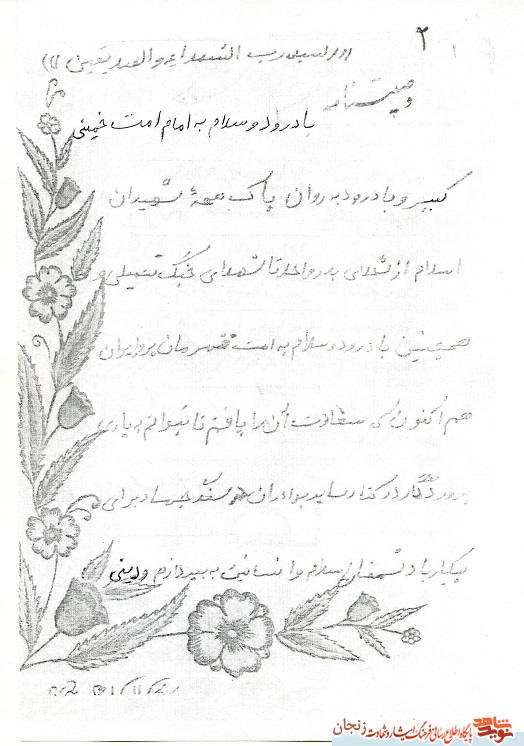 ۲
((بسم رب الشهداء والصدیقین))
وصیت نامه
با درود و سلام به امام امت خمینی
کبیر و با درود به روان پاک همهٔ شهیدان
اسلام از شهدای بدر و احد تا شهدای جنگ تحمیلی و
همچنین با درود و سلام به امت قهرمان پرور ایران
هم اکنون که سعادت آن را یافتم تا بتوانم به یاری
پروردگار در کنار سایر برادران سنگر جهاد برای
پیکار با دشمنان اسلام و انسانیت به پردازم و دینی
نوید شاهد
پایگاه اطلاع رسانی فرهنگ ایثار و شهادت زنجان